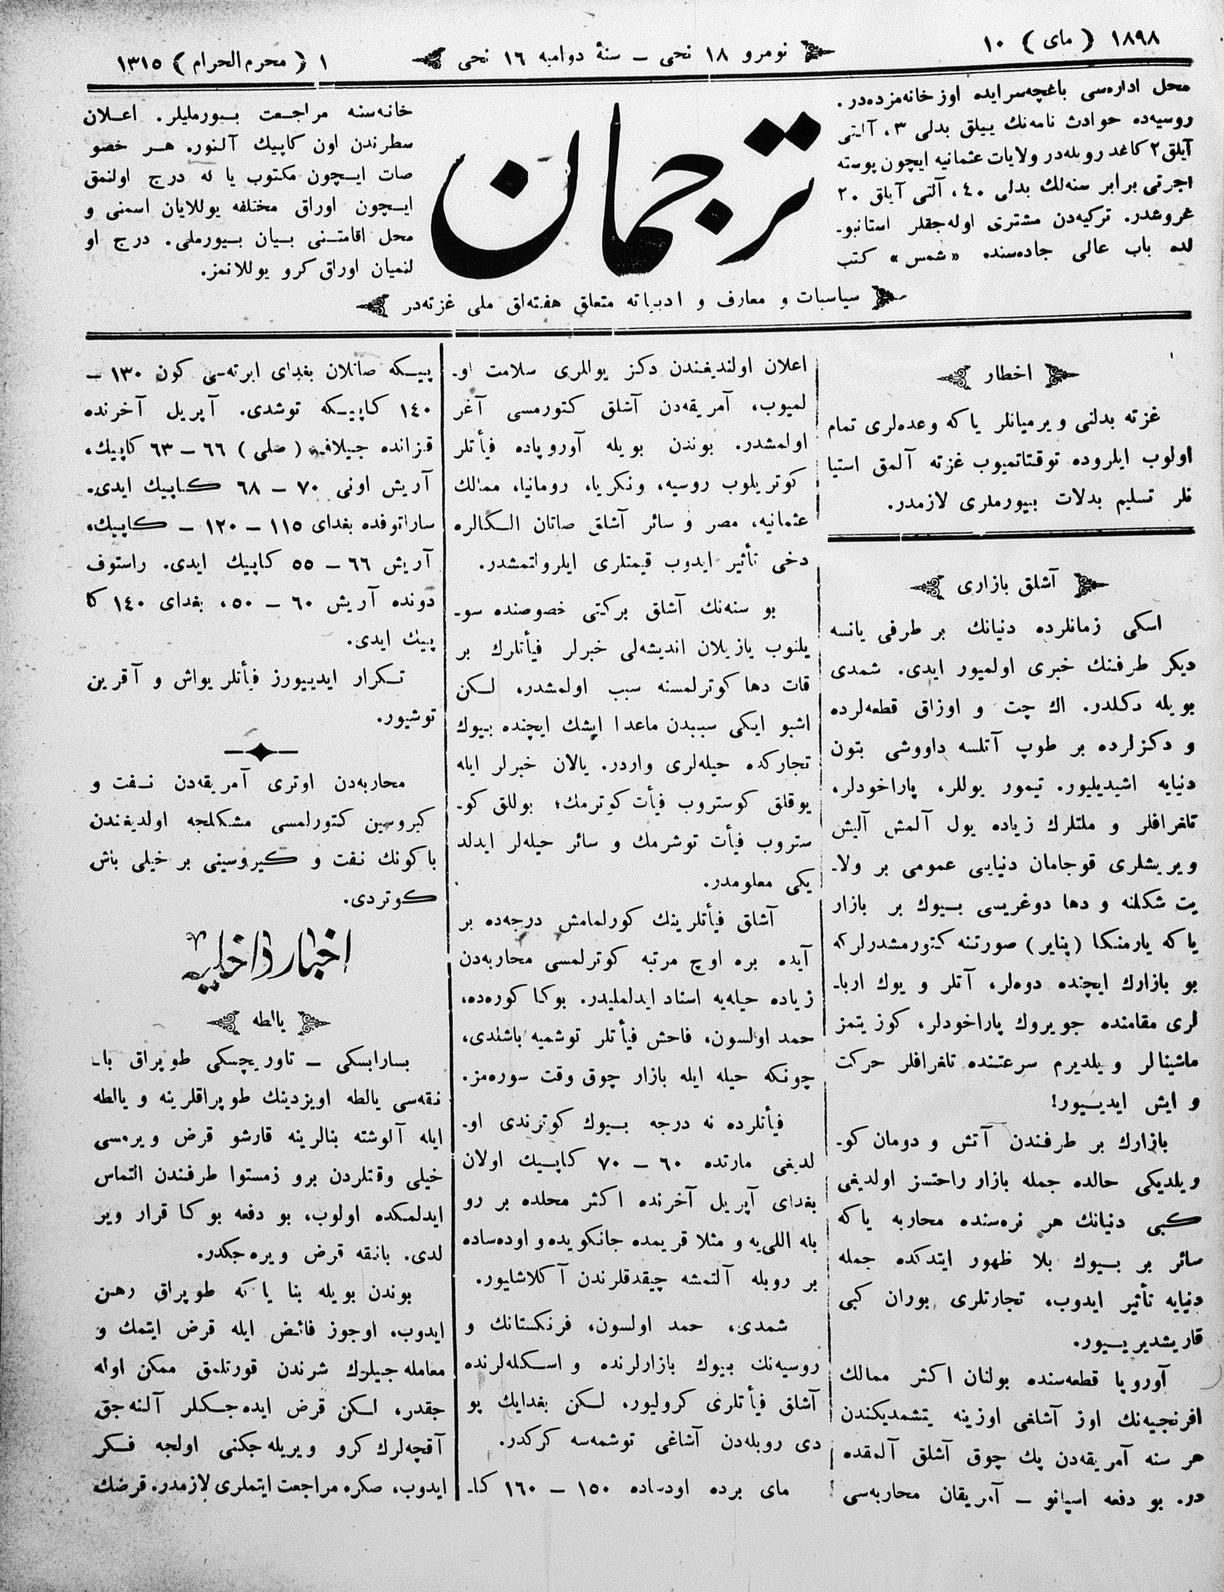 ١٨٩٨ ( ماى ) ١٠
نومرو ١٨ نحى ــ سنهٔ دواميه ١٦ نحى
١ ( محرم الحرام ) ١٣١٥
محل اداره‌سى باغچه‌سرايده اوز خانه‌مزده‌در.
روسيه‌ده حوادث نامه‌نك ييللق بدلى ٣، آلتى
آيلق ٢ كاغد روبله‌در ولايات عثمانيه ايچون پوسته
اجرتى برابر سنه‌لك بدلى ٤٠، آلتى آيلق ٢٠
غروشدر. تركيه‌دن مشترى اوله‌جقلر استانبو-
لده باب عالى جاده‌سنده «شمس» كتب
ترجمان
خانه‌سنه مراجعت بيورمليلر. اعلان
سطرندن اون كاپيك آلنور. هر خصو
صات ايچون مكتوب يا له درج اولنمق
ايچون اوراق مختلفه يوللايان اسمنى و
محل اقامتنى بيان بيورملى. درج او
لنميان اوراق كرو يوللانمز.
سياسيات و معارف و ادبياته متعلق هفته‌لق ملى غزته‌در
اخطار
غزته بدلنى ويرميانلر ياكه وعده‌لرى تمام
اولوب ايلروده توقتاتميوب غزته آلمق استيا
نلر تسليم بدلات بيورملرى لازمدر.
آشلق بازارى
اسكى زمانلرده دنيانك بر طرفى يانسه
ديكر طرفنك خبرى اولميور ايدى. شمدى
بويله دكلدر. اك چت و اوزاق قطعه‌لرده
و دكزلرده بر طوپ آتلسه داووشى بتون
دنيايه اشيديليور. تيمور يوللر، پاراخودلر،
تلغرافلر و ملتلرك زياده يول آلمش آليش
ويريشلرى قوجامان دنيايى عمومى بر ولا-
يت شكلنه و دها دوغريسى بيوك بر بازار
ياكه يارمنكا (پناير) صورتنه كتورمشدرلر كه
بو بازارك ايچنده دوه‌لر، آتلر و يوك اربا-
لرى مقامنده جويروك پاراخودلر، كوز يتمز
ماشينالر و يلديرم سرعتنده تلغرافلر حركت
و ايش ايدييور!
بازارك بر طرفندن آتش و دومان كو-
ويلديكى حالده جمله بازار راحتسز اولديغى
كبى دنيانك هر نره‌سنده محاربه ياكه
سائر بر بيوك بلا ظهور ايتدكده جمله
دنيايه تأثير ايدوب، تجارتلرى بوران كبى
قاريشديرييور.
آوروپا قطعه‌سنده بولنان اكثر ممالك
افرنجيه‌نك اوز آشلغى اوزينه يتشمديكندن
هر سنه آمريقه‌دن پك چوق آشلق آلمقده
در. بو دفعه اسپانو ــ آمريقان محاربه‌سى
اعلان اولنديغندن دكز يوللرى سلامت او-
لميوب، آمريقه‌دن آشلق كتورمسى آغر
اولمشدر. بوندن بويله آوروپاده فيأتلر
كوتريلوب روسيه، ونكريا، رومانيا، ممالك
عثمانيه، مصر و سائر آشلق صاتان الكالره
دخى تأثير ايدوب قيمتلرى ايلرولتمشدر.
بو سنه‌نك آشلق بركتى خصوصنده سو-
يلنوب يازيلان انديشه‌لى خبرلر فيأتلرك بر
قات دها كوترلمسنه سبب اولمشدر. لكن
اشبو ايكى سببدن ماعدا ايشك ايچنده بيوك
تجاركده حيله‌لرى واردر. يالان خبرلر ايله
يوقلق كوستروب فيأت كوترمك؛ بوللق كو-
ستروب فيأت توشرمك و سائر حيله‌لر ايدلد
يكى معلومدر.
آشلق فيأتلرينك كورلمامش درجه‌ده بر
آيده بره اوچ مرتبه كوترلمسى محاربه‌دن
زياده حيله‌يه اسناد ايدلمليدر. بوكا كوره‌ده،
حمد اولسون، فاحش فيأتلر توشميه باشلدى،
چونكه حيله ايله بازار چوق وقت سوره‌مز.
فيأتلرده نه درجه بيوك كوترندى او-
لديغى مارتده ٦٠ ــ ٧٠ كاپيك اولان
بغداى آپريل آخرنده اكثر محلده بر رو
بله اللى‌يه و مثلا قريمده جانكويده و اودساده
بر روبله آلتمشه چيقدقلرندن آكلاشليور.
شمدى، حمد اولسون، فرنكستانك و
روسيه‌نك بيوك بازارلرنده و اسكله‌لرنده
آشلق فيأتلرى كروليور. لكن بغدايك يو
دى روبله‌دن آشاغى توشمه‌سه كركدر.
ماى برده اودساده ١٥٠ ــ ١٦٠ كا-
پيكه صاتلان بغداى ايرته‌سى كون ١٣٠ ــ
١٤٠ كاپيكه توشدى. آپريل آخرنده
قزانده جيلاقه (صلى) ٦٦ ــ ٦٣ كاپيك،
آريش اونى ٧٠ ــ ٦٨ كاپيك ايدى.
ساراتوفده بغداى ١١٥ ــ ١٢٠ ــ كاپيك،
آريش ٦٦ ــ ٥٥ كاپيك ايدى. راستوف
دونده آريش ٦٠ ــ ٥٠، بغداى ١٤٠ كا
پيك ايدى.
تكرار ايدييورز فيأتلر يواش و آقرين
توشيور.
محاربه‌دن اوترى آمريقه‌دن نفت و
كيروسين كتورلمسى مشكلجه اولديغندن
باكونك نفت و كيروسينى بر خيلى باش
كوتردى.
اخبار داخليه
يالطه
بسارابسكى ــ تاوريچسكى طوپراق با-
نقه‌سى يالطه اويزدينك طوپراقلرينه و يالطه
ايله آلوشته بنالرينه قارشو قرض ويرمسى
خيلى وقتلردن برو زمستوا طرفندن التماس
ايدلمكده اولوب، بو دفعه بوكا قرار وير
لدى. بانقه قرض ويره‌جكدر.
بوندن بويله بنا ياكه طوپراق رهن
ايدوب، اوجوز فائض ايله قرض ايتمك و
معامله‌جيلرك شرندن قورتلمق ممكن اوله
جقدر، لكن قرض ايده‌جكلر آلنه‌جق
آقچه‌لرك كرو ويريله‌جكنى اولجه فكر
ايدوب، صكره مراجعت ايتملرى لازمدر. قرضك